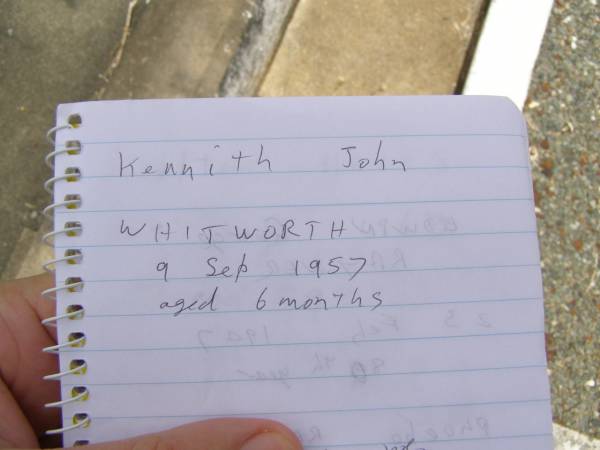 Kennith John
WHITWORTH
9 Sep 1957
aged 6 months